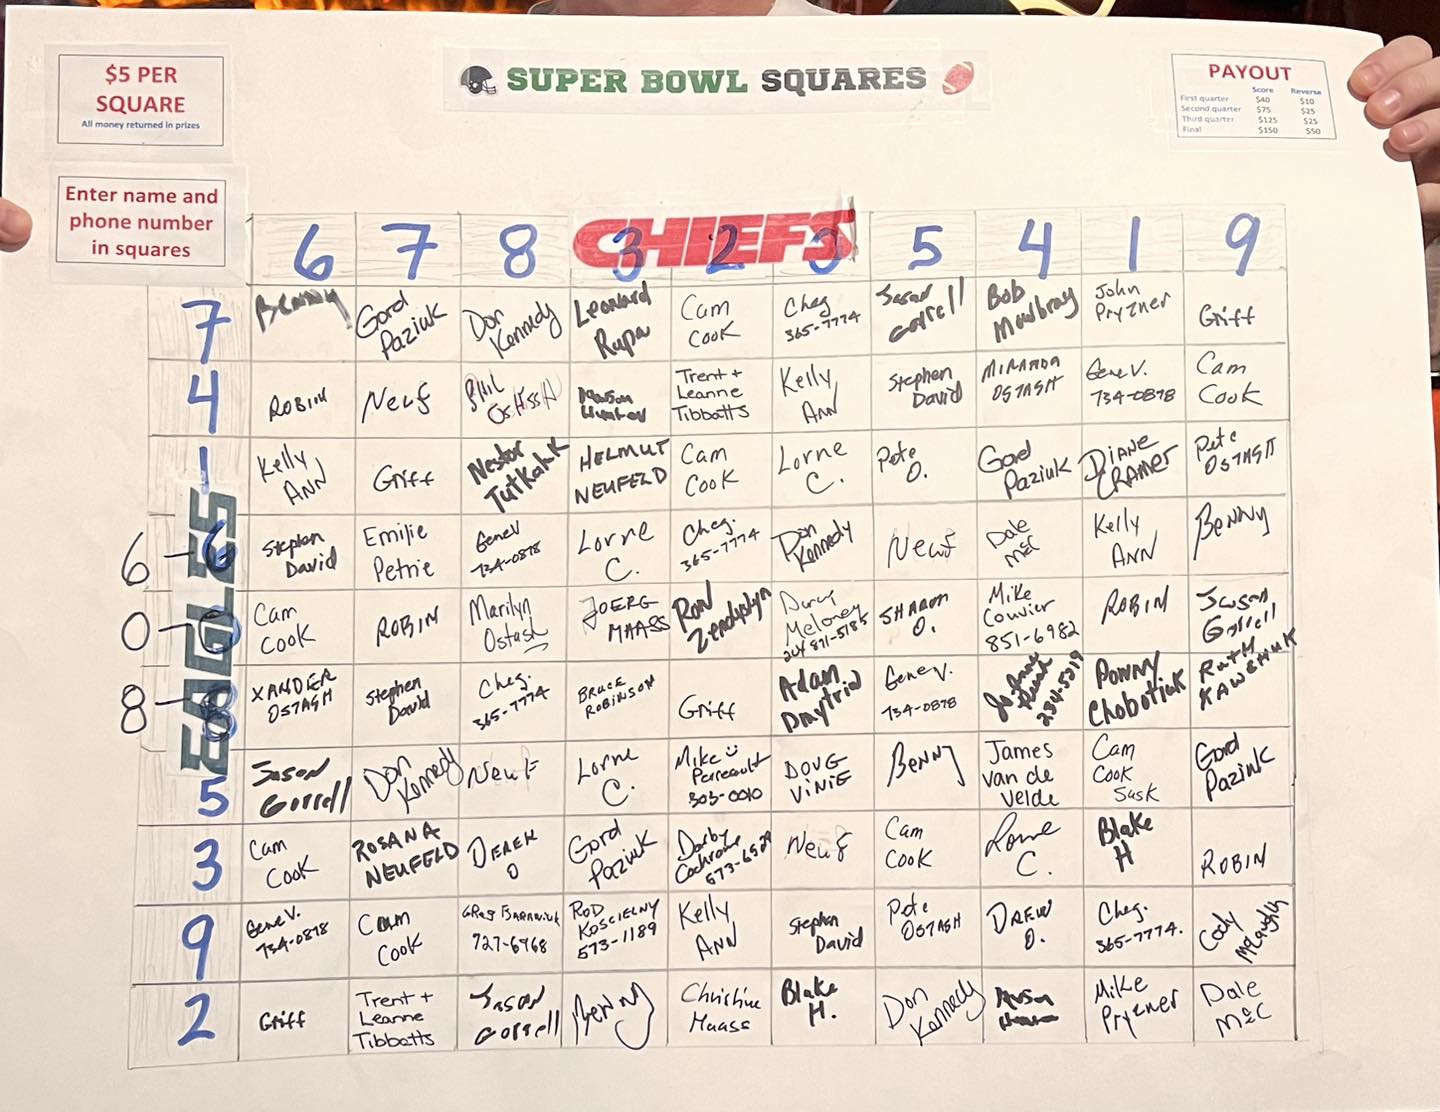 $5 PER
SQUARE
All money returned in prizes
SUPER BOWL SQUARES
PAYOUT
Score Reverse
First quarter $40 $10
Second quarter $75 $25
Third quarter $125 $25
Final $150 $50
Enter name and
phone number
in squares
CHIEFS
6 7 8 3 2 0 5 4 1 9
EAGLES
7
BENNY
Gord
Paziuk
Don
Kennedy
Leonard
Rupa
Cam
Cook
Cheg
365-7774
Jason
Gorrell
Bob
Mowbray
John
Pryzner
Griff
4
ROBIN
Neuf
PHIL
Trent +
Leanne
Tibbatts
Kelly
ANN
Stephen
David
MIRANDA
OSTASH
Gene V.
734-0878
Cam
Cook
1
Kelly
ANN
Griff
Nestor
HELMUT
NEUFELD
Cam
Cook
Lorne
C.
Pete
O.
Gord
Paziuk
DIANE
CRAMER
Pete
OSTASH
6 - 6
Stephen
David
Emilie
Petrie
Gene V
734-0878
Lorne
C.
Cheg.
365-7774
Don
Kennedy
Neuf
Dale
McC
Kelly
ANN
BENNY
0 - 0
Cam
Cook
ROBIN
Marilyn
Ostash
JOERG
MAASS
Ron
Doug
Meloney
204 871-5185
SHARON
O.
Mike
Couvier
851-6982
ROBIN
Jason
Gorrell
8 - 8
XANDER
OSTASH
Stephen
David
Cheg.
365-7774
BRUCE
ROBINSON
Griff
Adam
Dmytriw
Gene V.
734-0878
Jo Anne
Donny
Chobotiuk
RUTH
5
Jason
Gorrell
Don
Kennedy
Neuf
Lorne
C.
Mike
Perreault
303-0010
DOUG
VINIE
BENNY
James
van de
Velde
Cam
Cook
Sask
Gord
Paziuk
3
Cam
Cook
ROSANA
NEUFELD
DEREK
O
Gord
Paziuk
Darby
Cochrane
Neuf
Cam
Cook
Lorne
C.
Blake
H
ROBIN
9
Gene V.
734-0878
Cam
Cook
727-6768
ROD
KOSCIELNY
573-1189
Kelly
ANN
Stephen
David
Pete
OSTASH
DREW
O.
Cheg.
365-7774.
Cody
2
Griff
Trent +
Leanne
Tibbatts
Jason
Gorrell
BENNY
Christine
Maass
Blake
H.
Don
Kennedy
Mike
Pryzner
Dale
McC